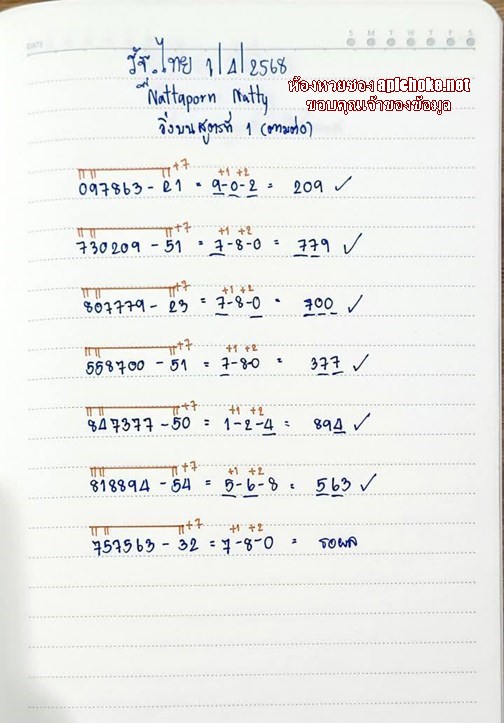 DATE S M T W T F S
รัฐ.ไทย 1/4/2568
ห้องหวยซอง apichoke.net
พี่Nattaporn Natty
ขอบคุณเจ้าของข้อมูล
วิ่งบนสูตรที่ -1 (ตามต่อ)
+7 +1 +2
097863 - 21 = 9-0-2 = 209 ✓
+7 +1 +2
730209 - 51 = 7-8-0 = 779 ✓
+7 +1 +2
807779 - 23 = 7-8-0 = 700 ✓
+7 +1 +2
558700 - 51 = 7-8-0 = 377 ✓
+7 +1 +2
847377 - 50 = 1-2-4 = 894 ✓
+7 +1 +2
818894 - 54 = 5-6-8 = 563 ✓
+7 +1 +2
757563 - 32 = 7-8-0 = รอผล